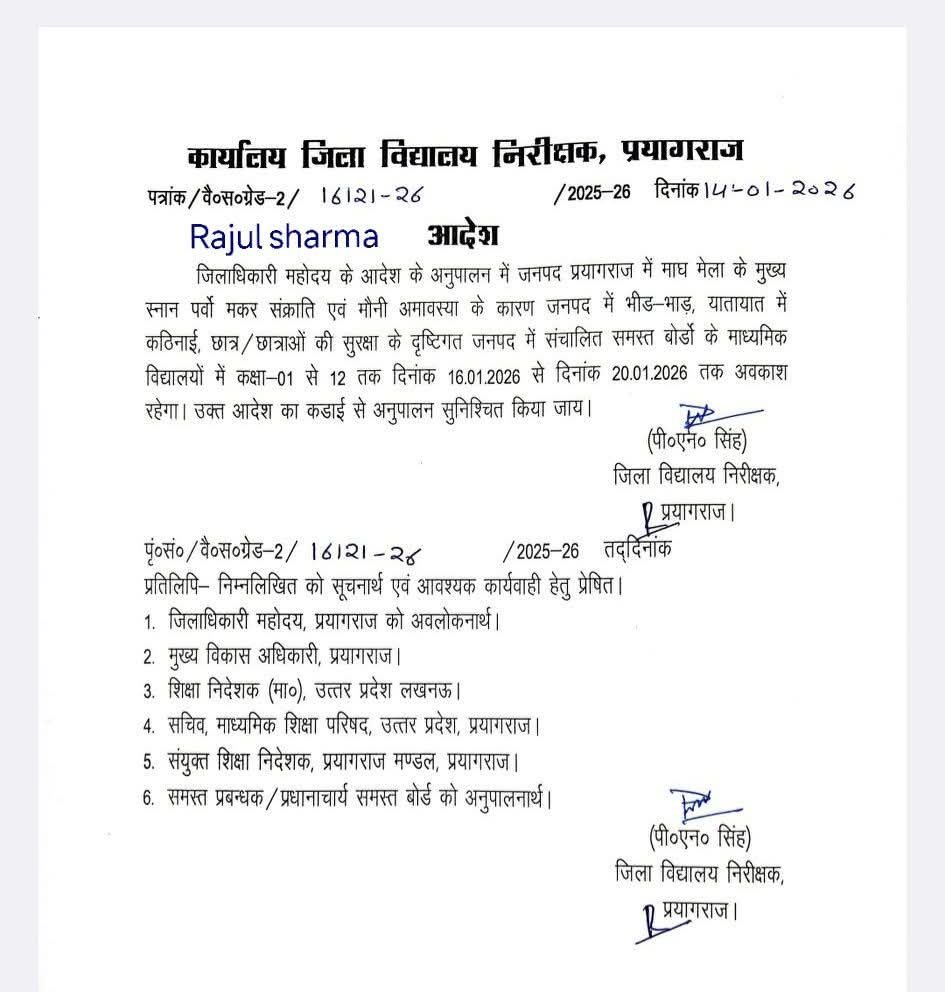 कार्यालय जिला विद्यालय निरीक्षक, प्रयागराज
पत्रांक/वै०स०ग्रेड–2/ 16121-26 /2025–26 दिनांक 14-01-2026
Rajul sharma आदेश
जिलाधिकारी महोदय के आदेश के अनुपालन में जनपद प्रयागराज में माघ मेला के मुख्य
स्नान पर्वो मकर संक्राति एवं मौनी अमावस्या के कारण जनपद में भीड–भाड़, यातायात में
कठिनाई, छात्र/छात्राओं की सुरक्षा के दृष्टिगत जनपद में संचालित समस्त बोर्डो के माध्यमिक
विद्यालयों में कक्षा–01 से 12 तक दिनांक 16.01.2026 से दिनांक 20.01.2026 तक अवकाश
रहेगा। उक्त आदेश का कडाई से अनुपालन सुनिश्चित किया जाय।
(पी०एन० सिंह)
जिला विद्यालय निरीक्षक,
प्रयागराज।
पृं०सं०/वै०स०ग्रेड–2/ 16121-26 /2025–26 तद्दिनांक
प्रतिलिपि– निम्नलिखित को सूचनार्थ एवं आवश्यक कार्यवाही हेतु प्रेषित।
1. जिलाधिकारी महोदय, प्रयागराज को अवलोकनार्थ।
2. मुख्य विकास अधिकारी, प्रयागराज।
3. शिक्षा निदेशक (मा०), उत्तर प्रदेश लखनऊ।
4. सचिव, माध्यमिक शिक्षा परिषद, उत्तर प्रदेश, प्रयागराज।
5. संयुक्त शिक्षा निदेशक, प्रयागराज मण्डल, प्रयागराज।
6. समस्त प्रबन्धक/प्रधानाचार्य समस्त बोर्ड को अनुपालनार्थ।
(पी०एन० सिंह)
जिला विद्यालय निरीक्षक,
प्रयागराज।